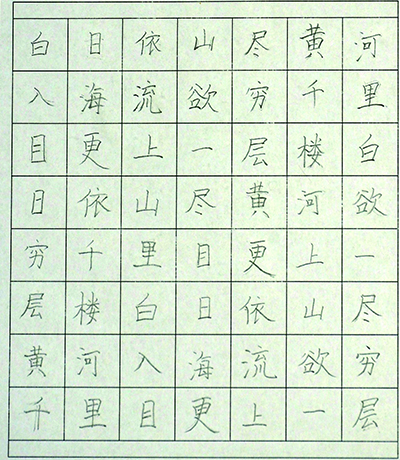 白日依山尽黄河
入海流欲穷千里
目更上一层楼白
日依山尽黄河欲
穷千里目更上一
层楼白日依山尽
黄河入海流欲穷
千里目更上一层